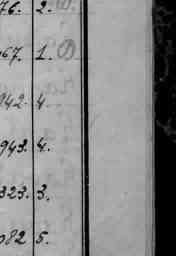 76. 2.
67. 1. D
942. 4.
943. 4.
323. 3.
082 5.